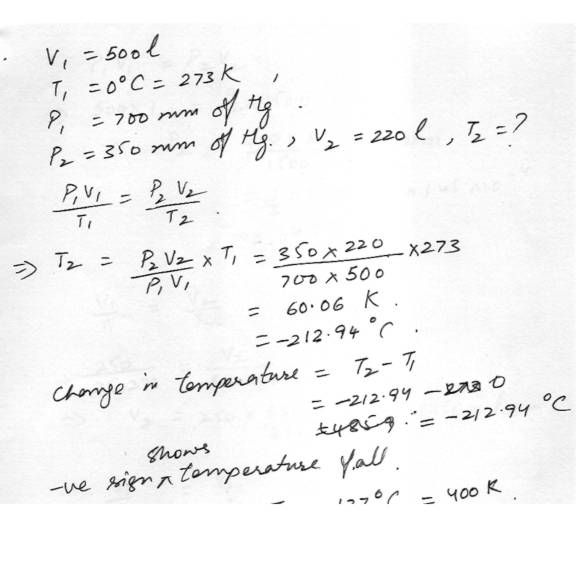 V₁ = 500 l
T₁ = 0°C = 273 K ,
P₁ = 700 mm of Hg .
P₂ = 350 mm of Hg. , V₂ = 220 l , T₂ = ?
P₁V₁/T₁ = P₂V₂/T₂ .
⇒ T₂ = P₂V₂/P₁V₁ × T₁ = 350 × 220/700 × 500 × 273
= 60.06 K .
= -212.94 °C .
Change in temperature = T₂ - T₁
= -212.94 - 0
= -212.94 °C
-ve sign shows temperature fall.
= 127°C = 400 K .